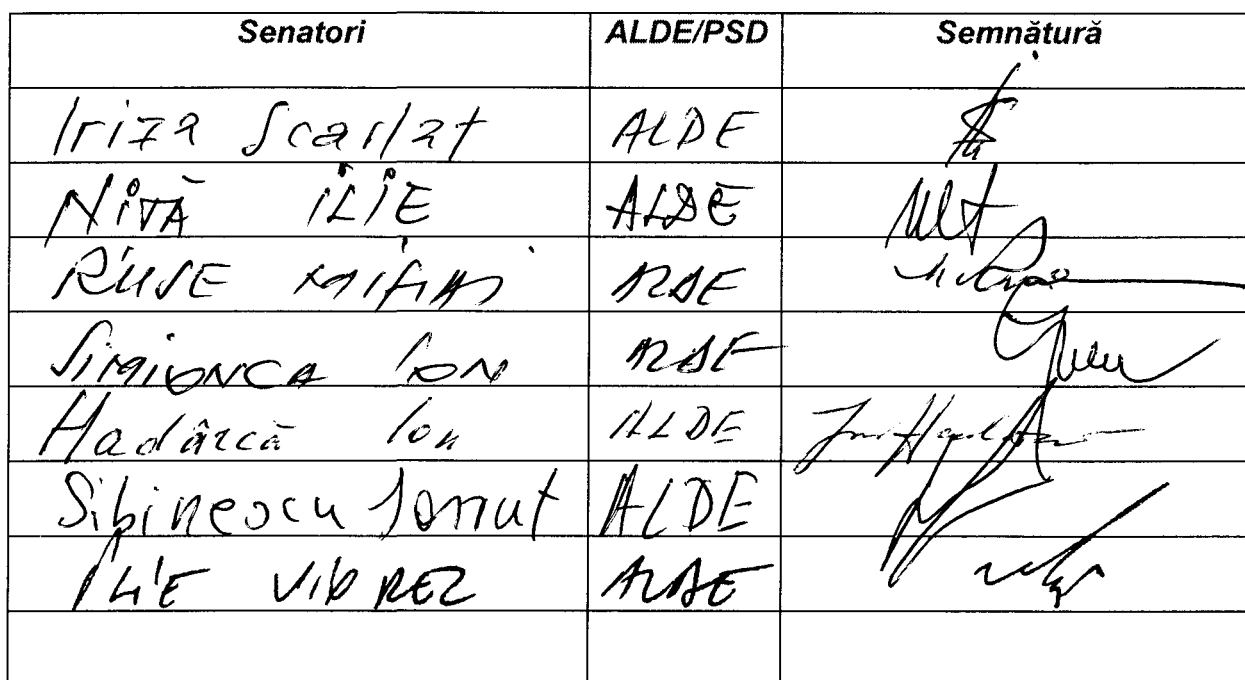 Senatori ALDE/PSD Semnătură
Iriza Scarlat ALDE
NIȚĂ ILIE ALDE
RUSE MIHAI ALDE
SIMIONCA ION ALDE
Hadârcă Ion ALDE
Sibinescu Ionuț ALDE
ILIE ALDE